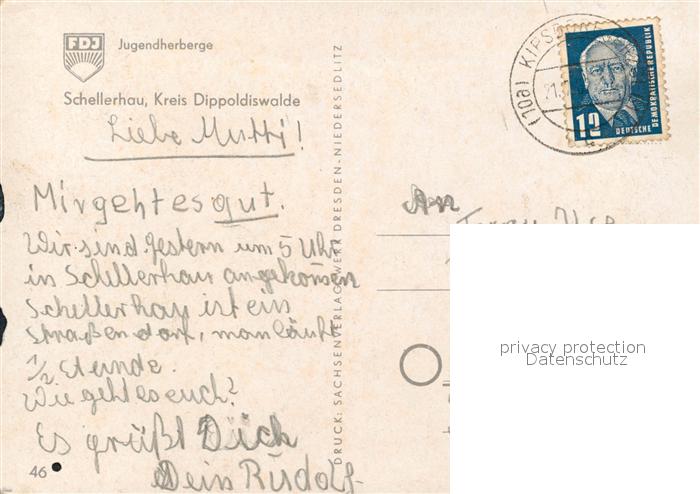 FDJ
Jugendherberge
Schellerhau, Kreis Dippoldiswalde
Liebe Mutti!
Mir geht es gut.
Wir sind gestern um 5 Uhr
in Schellerhau angekommen
Schellerhau ist ein
straßendorf, man läuft
1/2 Stunde.
Wie geht es euch?
Es grüßt Dich
Dein Rudolf
46
DRUCK: SACHSENVERLAG WERK DRESDEN-NIEDERSEDLITZ
(10a) KIPSD
21.
12
DEUTSCHE
DEMOKRATISCHE REPUBLIK
An
privacy protection
Datenschutz